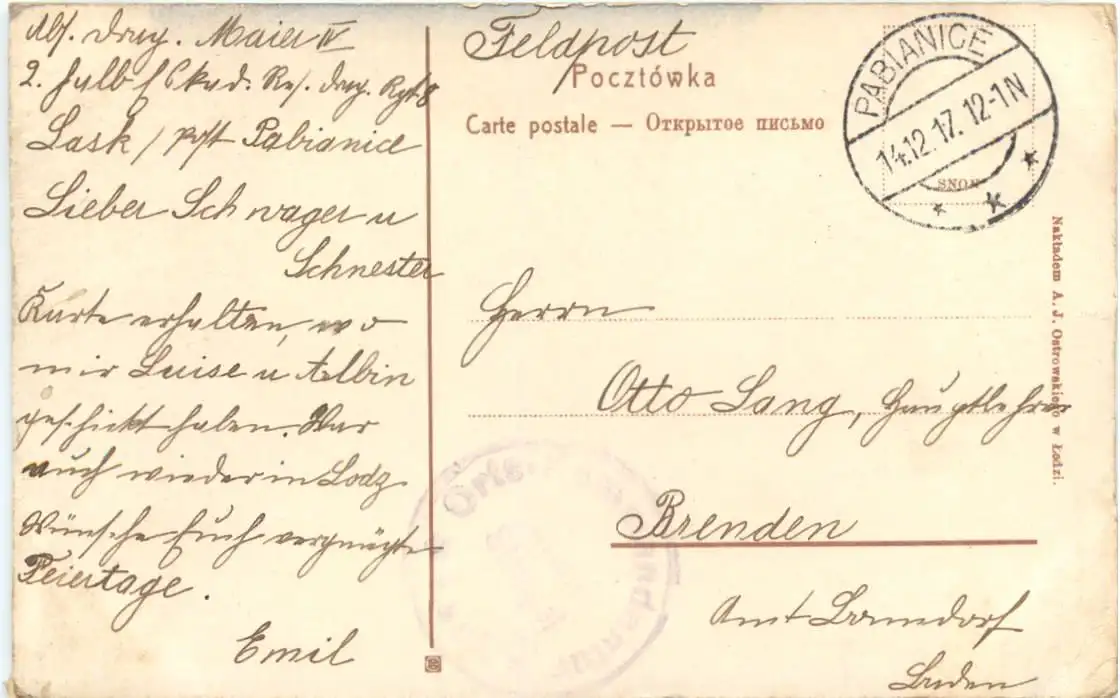 Abs. Drag. Maier IV
2. Halb Eskad. Res. Drag. Rgt 8
Lask / post Pabianice
Lieber Schwager u
Schwester
Karte erhalten, wo
mir Luise u Albin
geschickt haben. War
auch wieder in Lodz.
Wünsche Euch vergnügte
Feiertage.
Emil
Feldpost
Pocztówka
Carte postale — Открытое письмо
PABIANICE
14.12.17. 12-1N
Herrn
Otto Lang, Hauptlehrer
Brenden
Amt Bonndorf
Baden
Nakładem A. J. Ostrowskiego w Łodzi.